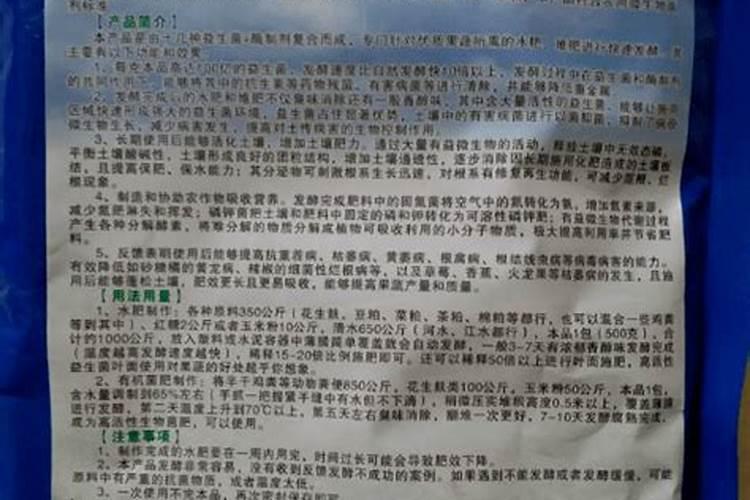 【产品简介】
本产品是由十几种益生菌+酶制剂复合而成，专门针对优质果蔬所需的水肥、堆肥进行快速发酵，其
主要有以下功能和效果：
1、每克本品高达100亿的益生菌，发酵速度比自然发酵快10倍以上，发酵过程中在益生菌和酶制剂
的共同作用下，能够将其中的抗生素等药物残留、有害病菌等进行清除，并能够降低重金属
2、发酵完成后的水肥和堆肥不仅臭味消除还有一股香醇味，其中含大量活性的益生菌，能够让施用
区域快速形成强大的益生菌环境，益生菌占住显著优势，土壤中的有害病菌进行以菌抑菌，抑制了病害
微生物生长，减少病害发生，提高对土传病害的生物控制作用。
3、长期使用后能够活化土壤，增加土壤肥力。通过大量有益微生物的活动，释放土壤中无效态磷，
平衡土壤酸碱性，土壤形成良好的团粒结构，增加土壤通透性，逐步消除因长期施用化肥造成的土壤板
结，且提高保肥、保水能力；其分泌物可刺激根系生长迅速，对根系有修复再生功能，可减少涝根、烂
根现象。
4、制造和协助农作物吸收营养。发酵完成肥料中的固氮菌将空气中的氮转化为氨，增加氮素来源，
减少氮肥淋失和挥发；磷钾菌把土壤和肥料中固定的磷和钾转化为可溶性磷钾肥；有益微生物代谢过程
产生各种分解酵素，将难分解的物质分解成植物可吸收利用的小分子物质，极大提高利用率并节省肥
料。
5、反馈表明使用后能够提高抗重茬病、枯萎病、黄萎病、根腐病、根结线虫病等病毒病害的能力。
有效降低如砂糖橘的黄龙病、辣椒的细菌性烂根病等，以及草莓、香蕉、火龙果等枯萎病的发生，且施
用后能够蓬松土壤，肥效更长且更易吸收，能够提高果蔬产量和质量。
【用法用量】
1、水肥制作：各种原料350公斤（花生麸、豆粕、菜粕、茶粕、棉粕等都行，也可以混合一些鸡粪
等到其中）、红糖2公斤或者玉米粉10公斤，清水650公斤（河水、江水都行），本品1包（500克），合
计约1000公斤，放入敞料或水泥容器中薄膜简单覆盖就会自动发酵，一般3-7天有浓郁香醇味发酵完成
（温度越高发酵速度越快），稀释15-20倍比例施肥即可。还可以稀释50倍以上进行叶面施肥，高活性
益生菌叶面使用对果蔬的好处超乎你想象。
2、有机菌肥制作：将半干鸡粪等动物粪便850公斤，花生麸类100公斤，玉米粉50公斤，本品1包，
含水量调制到65%左右（手抓一把握紧手缝中有水但不下滴），稍微压实堆垛高度0.5米以上，覆盖薄膜
进行发酵，第二天温度上升到70℃以上，第五天左右臭味消除，翻堆一次更好，7-10天发酵腐熟完成，
成为高活性生物菌肥，可以使用。
【注意事项】
1、制作完成的水肥要在一周内用完，时间过长可能会导致肥效下降。
2、本产品发酵非常容易，没有收到反馈发酵不成功的案例。如果遇到不能发酵或者发酵缓慢，可能
原料中有严重的抗菌物质，或者温度太低。
3、一次使用不完本品，再次密封保存即可